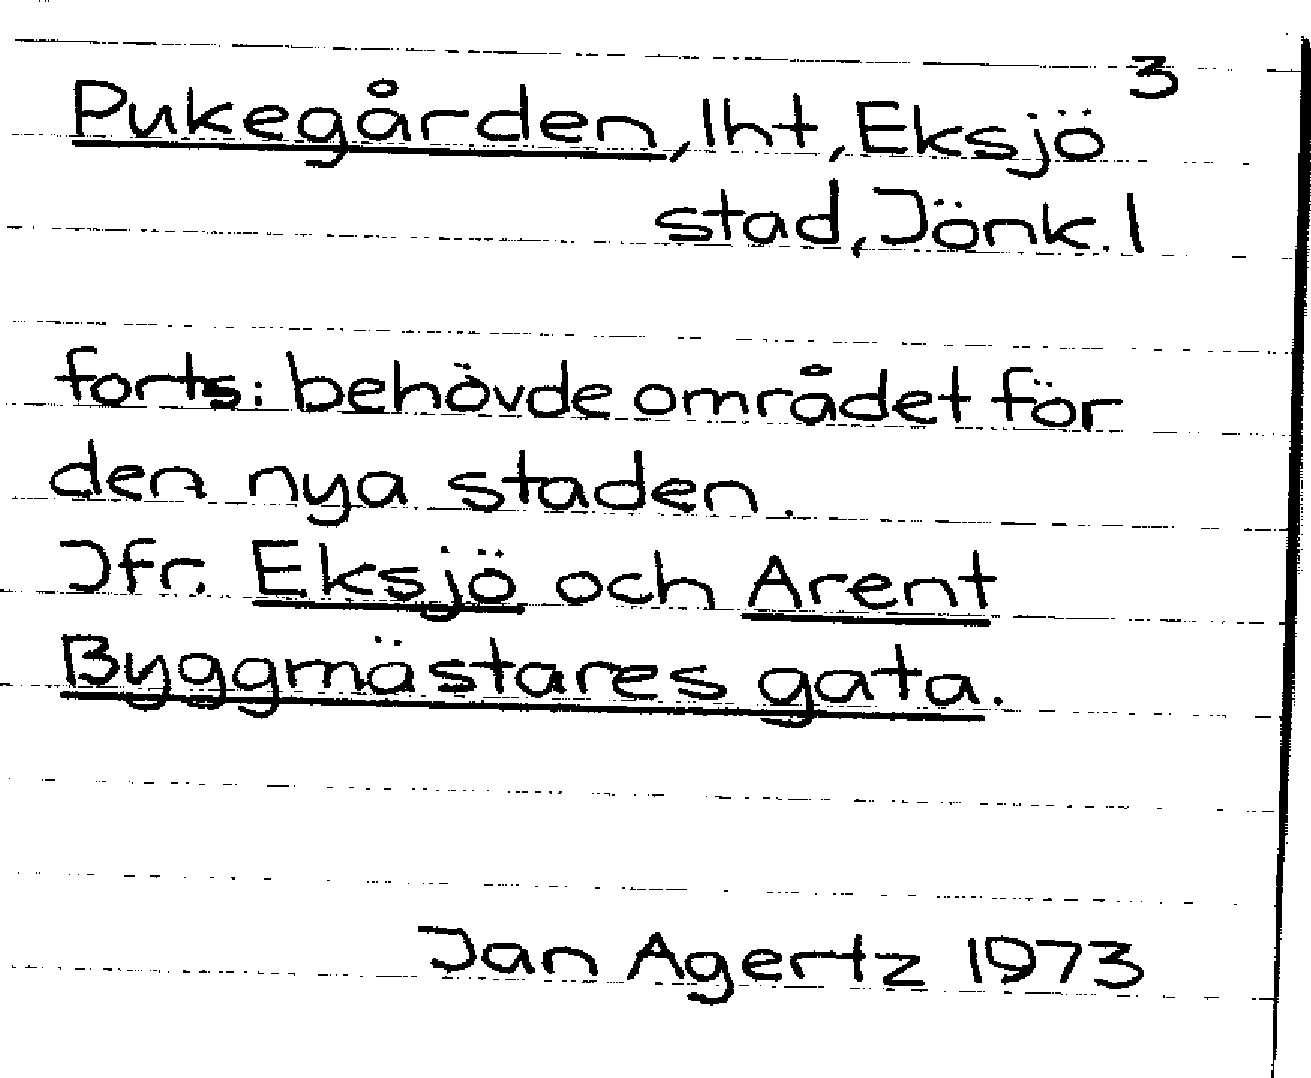 3
Pukegården, lht, Eksjö
stad, Jönk. l
forts: behövde området för
den nya staden.
Jfr. Eksjö och Arent
Byggmästares gata.
Jan Agertz 1973